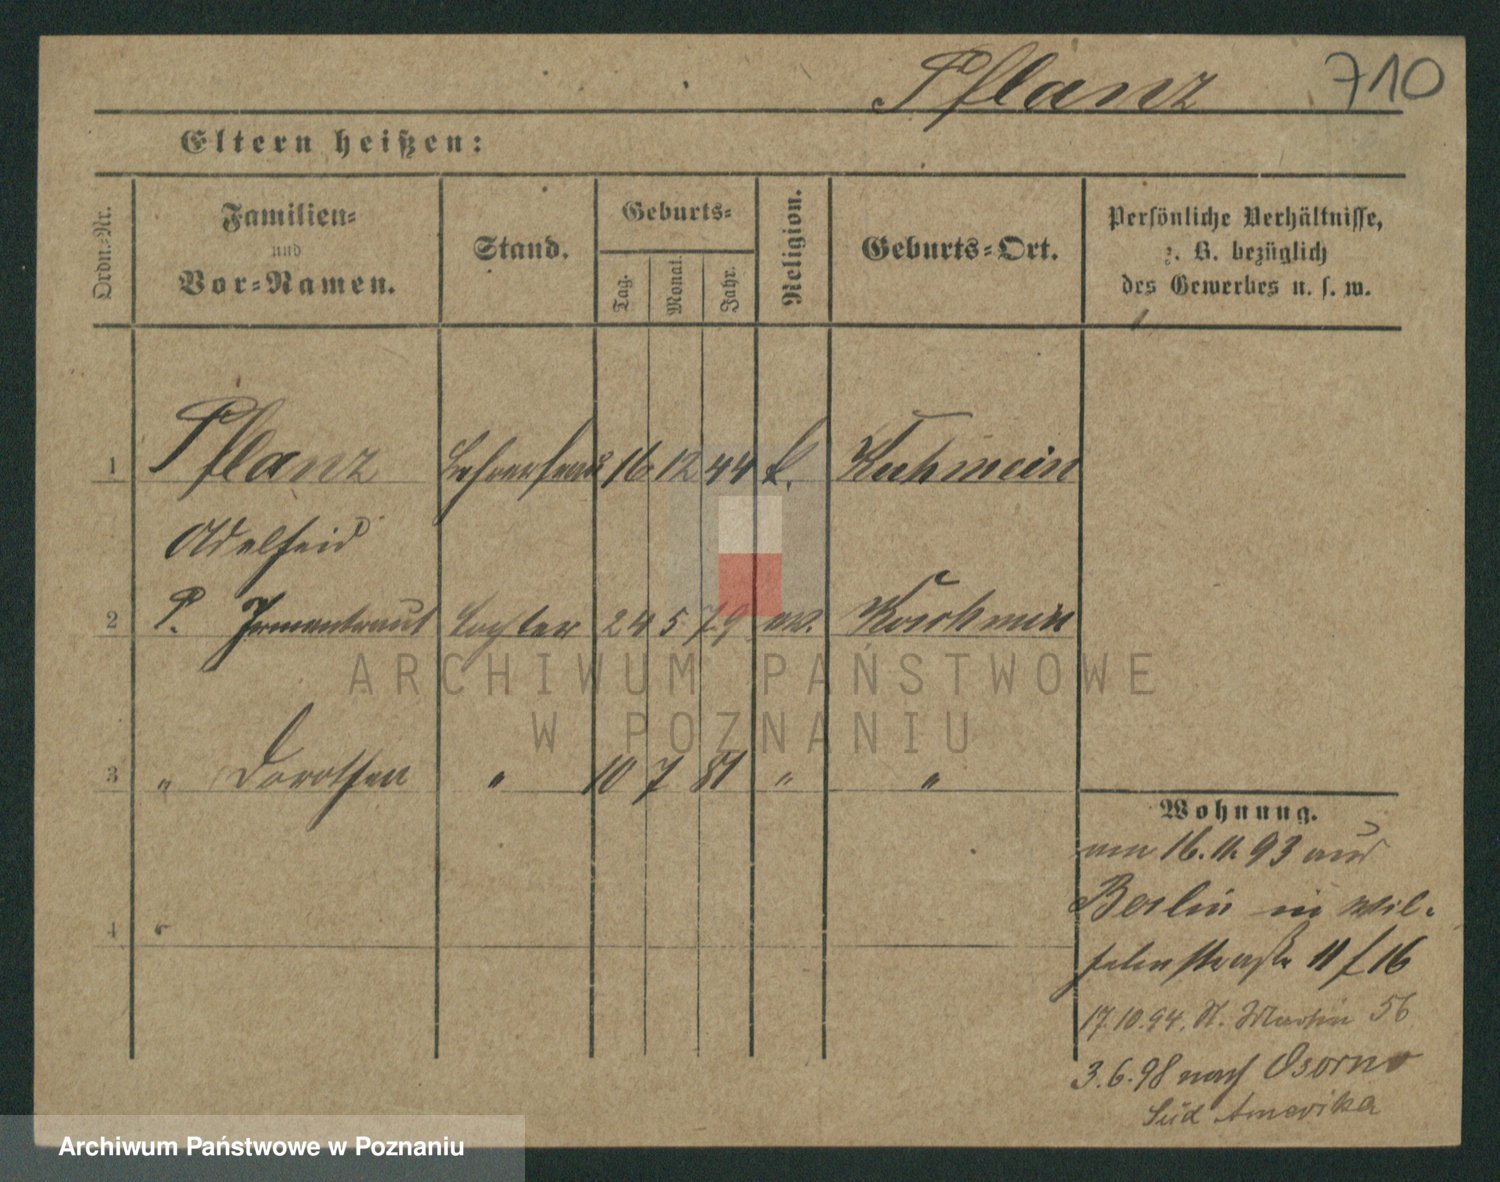 Pflanz 710
Eltern heißen:
Ordn.-Nr.
Familien-
und
Vor-Namen.
Stand.
Geburts-
Tag.
Monat.
Jahr.
Religion.
Geburts-Ort.
Persönliche Verhältnisse,
z. B. bezüglich
des Gewerbes u. s. w.
1 Pflanz Lehrerfrau 16 12 44 k.
Adelheid
2 P. Irmentraut Tochter 24 5 79 ev.
3 " Dorothea " 10 7 81 " "
4
Wohnung.
am 16.11.93 aus
Berlin in Wil-
helmstraße 11 f 16
17.10.94. St. Martin 56
3.6.98 nach Osorno
Süd Amerika
ARCHIWUM PAŃSTWOWE
W POZNANIU
Archiwum Państwowe w Poznaniu